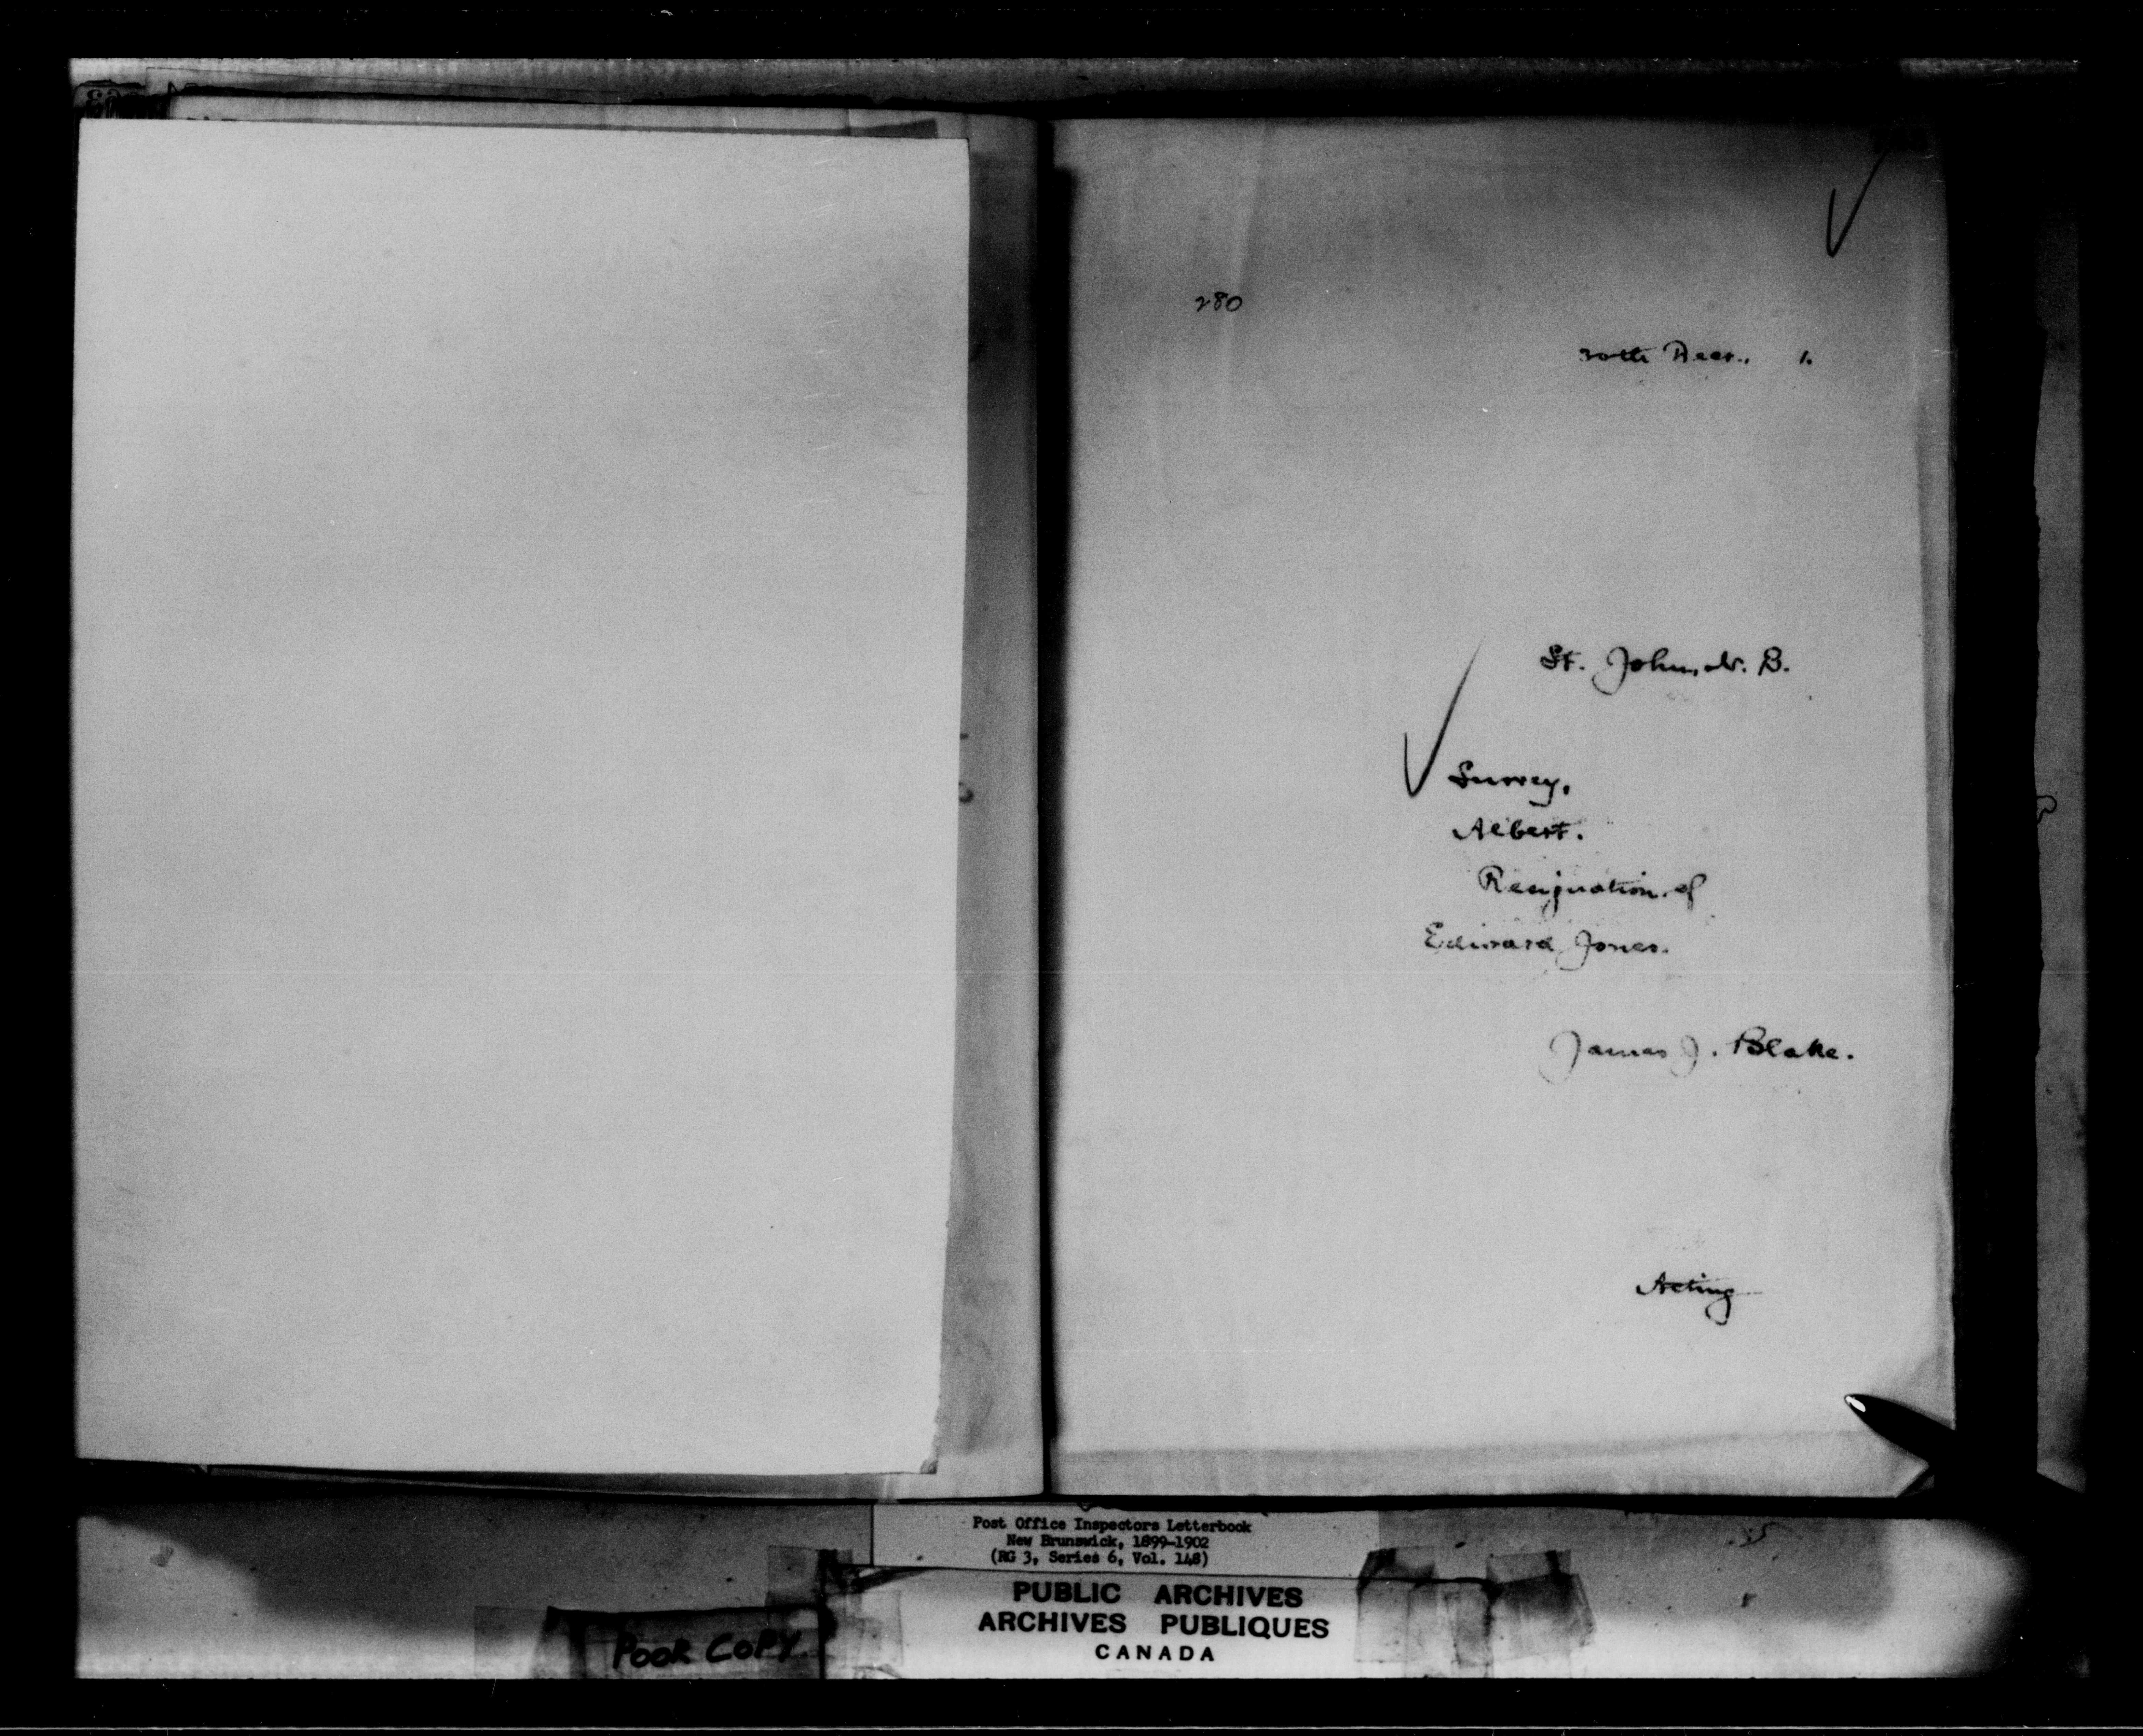 280
30th Decr., 1.
St. John, N. B.
Surrey,
Albert.
Resignation of
Edward Jones.
James J. Blake.
Acting
Post Office Inspectors Letterbook
New Brunswick, 1899-1902
(RG 3, Series 6, Vol. 148)
PUBLIC ARCHIVES
ARCHIVES PUBLIQUES
CANADA
POOR COPY